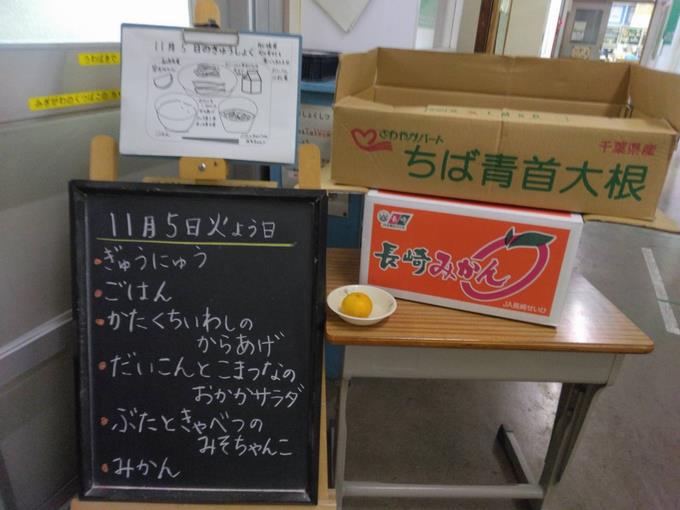 うわばきで
みぎがわのくつばこの
11月5日のきゅうしょく
ごはん
さわやかハート
千葉県産
ちば青首大根
長崎
長崎みかん
JA長崎せいひ
11月5日火よう日
ぎゅうにゅう
ごはん
かたくちいわしの
からあげ
だいこんとこまつなの
おかかサラダ
ぶたときゃべつの
みそちゃんこ
みかん